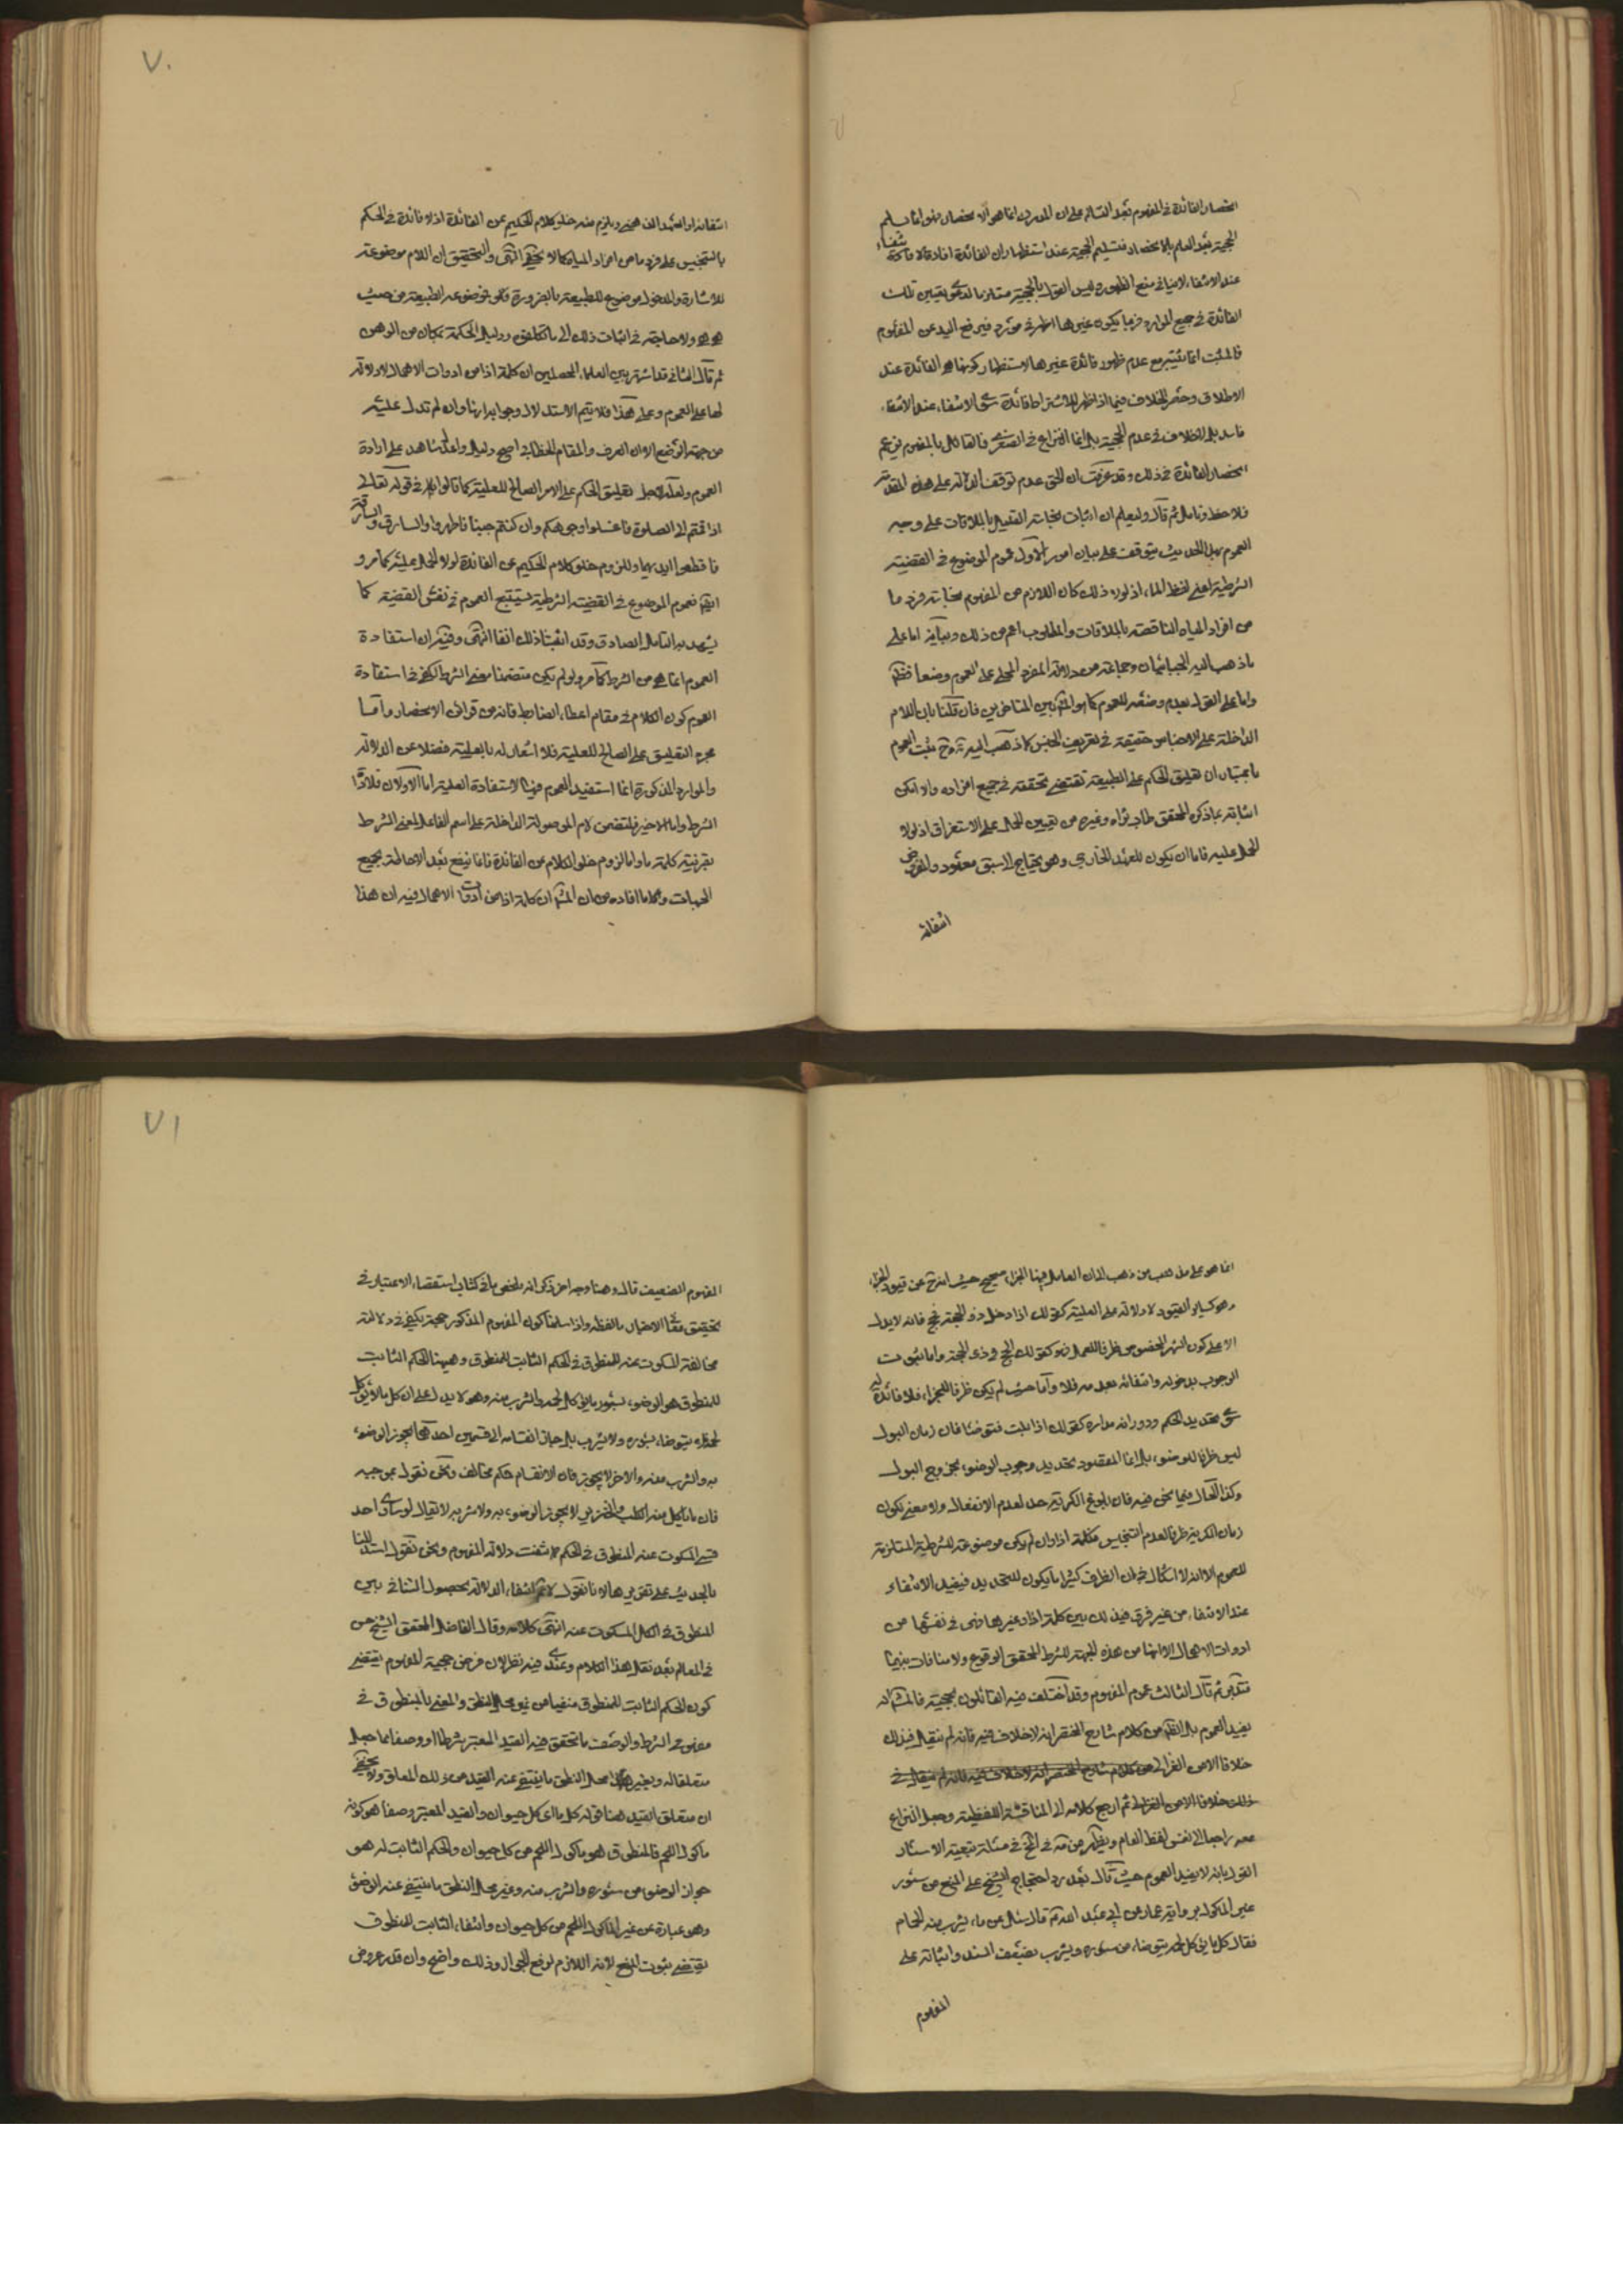 انحصار الفائدة في المفهوم بعد التسالم على ان المدرك انما هو الانحصار فهو انما يسلم
الحجية بعد العلم بالانحصار فتسليم الحجية عند استظهار ان الفائدة افادة الانتفاء
عند الانتفاء لا ينافي منع الظهور وليس القول بالحجية متلازما لدعوى تعيين تلك
الفائدة في جميع الموارد فربما يكون غيرها اظهر في مورد فيرفع اليد عن المفهوم
فالمثبت انما يثبته مع عدم ظهور فائدة غيرها لاستظهار كونها هي الفائدة عند
الاطلاق وحصر الخلاف فيما اذا ظهر للاشتراط فائدة سوى الانتفاء عند الانتفاء
فاسد بل لا خلاف في عدم الحجية بل انما النزاع في الصغرى فالقائل بالمفهوم يزعم
انحصار الفائدة في ذلك وقد عرفت ان الحق عدم توقف الدلالة على هذه المقدمة
فلاحظ وتامل ثم قال وليعلم ان اثبات نجاسة القليل بالملاقات على وجه
العموم بهذا الحديث يتوقف على بيان امور الاول عموم الموضوع في القضية
الشرطية اعني لفظ الماء اذ لولا ذلك كان اللازم من المفهوم نجاسة فرد ما
من افراد المياه الناقصة بالملاقات والمطلوب اعم من ذلك وبيانه اما على
ما ذهب اليه الجبائيان وجماعة من دلالة المفرد المحلى على العموم وضعا فظم
واما على القول بعدم وضعه للعموم كما هو المشهور بين المتاخرين فان قلنا بان اللام
الداخلة على الاجناس حقيقة في تعريف الجنس كما ذهب اليه وح يثبت العموم
باعتبار ان تعليق الحكم على الطبيعة تقتضي تحققه في جميع افراده والا امكن
اثباته بما ذكره المحقق طاب ثراه وغيره من تعيين الحمل على الاستغراق اذ لولا
الحمل عليه فاما ان يكون للعهد الخارجي وهو يحتاج الى سبق معهود والفرض
انتفائه
انتفائه او للعهد الذهني ويلزم منه خلو كلام الحكيم عن الفائدة اذ لا فائدة في الحكم
بالتنجيس على فرد ما من افراد المياه كما لا يخفى انتهى والتحقيق ان اللام موضوعة
للاشارة والمدخول موضوع للطبيعة بالضرورة فهو موضوعه الطبيعة من حيث
هي هي ولا حاجة في اثبات ذلك الى ما تكلفه ودليل الحكمة بمكان من الوهن
ثم قال الثاني قد اشتهر بين العلماء المحصلين ان كلمة اذا من ادوات الاهمال لا دلالة
لها على العموم وعلى هذا فلا يتم الاستدلال وجوابه انها وان لم تدل عليه
من جهة الوضع الا ان العرف والمقام الخطابي اصح دليل واعدل شاهد على ارادة
العموم ولعله لاجل تعليق الحكم على الامر الصالح للعلية كما قالوا في قوله تعالى
اذا قمتم الى الصلوة فاغسلوا وجوهكم وان كنتم جنبا فاطهروا والسارق والسارقة
فاقطعوا ايديهما وللزوم خلو كلام الحكيم عن الفائدة لولا الحمل عليه كما مر و
ايضا فعموم الموضوع في القضية الشرطية يستتبع العموم في نفس القضية كما
يشهد به التامل الصادق وقد اثبتنا ذلك انفا انتهى وفيه ان استفادة
العموم انما هي من الشرط كما مر ولو لم يكن متضمنا معنى الشرط لكفى في استفادة
العموم كون الكلام في مقام اعطاء الضابط فانه من قرائن الانحصار واما
مجرد التعليق على الصالح للعلية فلا اشعار له بالعلية فضلا عن الدلالة
والموارد المذكورة انما استفيد العموم فيها لاستفادة العلية اما الاولان فلاداة
الشرط واما الاخير فلتضمن لام الموصولة الداخلة على اسم الفاعل لمعنى الشرط
بقرينة كلمة فاء واما لزوم خلو الكلام عن الفائدة فانما ينفع بعد الاحاطة بجميع
الجهات واما ما افاده من ان المشهور ان كلمة اذا من ادوات الاهمال ففيه ان هذا
انما هو على مذهب من ذهب الى ان العامل فيها الجزاء صحيح حيث انه من قيود الجزاء
وهو كساير القيود لا دلالة على العلية كقولك اذا دخل ذو الحجة فحج فانه لا يدل
الا على كون الشهر المخصوص ظرفا للعمل فهو كقولك الحج في ذي الحجة واما ثبوت
الوجوب بدخوله وانتفائه بعدمه فلا واما حيث لم يكن ظرفا للجزاء فلا فائدة له
سوى تحديد الحكم ودورانه مداره كقولك اذا بلت فتوضا فان زمان البول
ليس ظرفا للوضوء بل انما المقصود تحديد وجوب الوضوء بخروج البول
وكذا الحال فيما نحن فيه فان بلوغ الكرية حد لعدم الانفعال ولا معنى لكون
زمان الكرية ظرفا لعدم التنجيس فكلمة اذا وان لم يكن موضوعة للشرطية المستلزمة
للعموم الا انه لا اشكال في ان الظرف كثيرا ما يكون للتحديد فيفيد الانتفاء
عند الانتفاء من غير فرق في ذلك بين كلمة اذا وغيرها فهي في نفسها من
ادوات الاهمال الا انها من هذه الجهة للشرط المحقق الوقوع ولا منافات بينهما
فتدبر ثم قال الثالث عموم المفهوم وقد اختلف فيه القائلون بحجيته فالمشهور انه
يفيد العموم بل الظاهر من كلام شارح المختصر انه لا خلاف فيه فانه لم ينقل في ذلك
خلافا الا من الغزالي من كلام شارح المختصر انه لا خلاف فيه فانه لم ينقل في
ذلك خلافا الا من الغزالي ثم ارجع كلامه الى المناقشة اللفظية وجعل النزاع
معه راجعا الى نفس لفظ العام ويظهر من مة في المخ في مسئلة تبعية الاسئار
القول بانه لا يفيد العموم حيث قال بعد رد احتجاج الشيخ على المنع من سئور
غير الماكول برواية عمار عن ابي عبد الله ع قال سئل عن ماء يشرب منه الحمام
فقال كل ما يؤكل لحمه يتوضا من سئوره ويشرب بضعف السند وابتنائه على
المفهوم
المفهوم الضعيف قال وهنا وجه اخر ذكرانه ملخص ما في كتاب استقصاء الاعتبار في
تحقيق معاني الاخبار بالفظه واذا سلمنا كون المفهوم المذكور حجة يكفي في دلالته
مخالفة المسكوت عنه للمنطوق في الحكم الثابت للمنطوق وهيهنا الحكم الثابت
للمنطوق هو الوضوء بسئور ما يؤكل لحمه والشرب منه وهو لا يدل على ان كل ما لا يؤكل
لحمه لا يتوضا بسئوره ولا يشرب بل جاز انقسامه الى قسمين احدهما يجوز الوضوء
به والشرب منه والاخر لا يجوز فان الانقسام حكم مخالف ونحن نقول بموجبه
فان ما لا يؤكل منه الكلب والخنزير لا يجوز الوضوء به ولا شربه لا يقال لو ساوى احد
قسمي المسكوت عنه المنطوق في الحكم لانتفت دلالة المفهوم ونحن نقول استدللنا
بالحديث على تقديرها لانا نقول لا ثم انتفاء الدلالة بحصول التنافي بين
المنطوق في الكل المسكوت عنه انتهى كلامه وقال الفاضل المحقق الشيخ حسن
في المعالم بعد نقل هذا الكلام وعندي فيه نظر لان فرض حجية المفهوم يقتضي
كون الحكم الثابت للمنطوق منفيا عن غير محل النطق والمعني بالمنطوق في
مفهومي الشرط والوصف ما تحقق فيه القيد المعتبر شرطا او وصفا مما جعل
متعلقا له وبغير محل النطق ما ينتفي عنه القيد من ذلك المتعلق ولا يخفى
ان متعلق القيد هنا قوله كل ما اي كل حيوان والقيد المعتبر وصفا هو كونه
ماكول اللحم فالمنطوق هو ماكول اللحم من كل حيوان والحكم الثابت له هو
جواز الوضوء من سئوره والشرب منه وغير محل النطق ما انتفى عنه الوصف
وهو عبارة عن غير الماكول اللحم من كل حيوان وانتفاء الثابت للمنطوق
يقتضي ثبوت المنع لانه اللازم لرفع الجواز وذلك واضح وان قدر عروض
٧٠
٧١